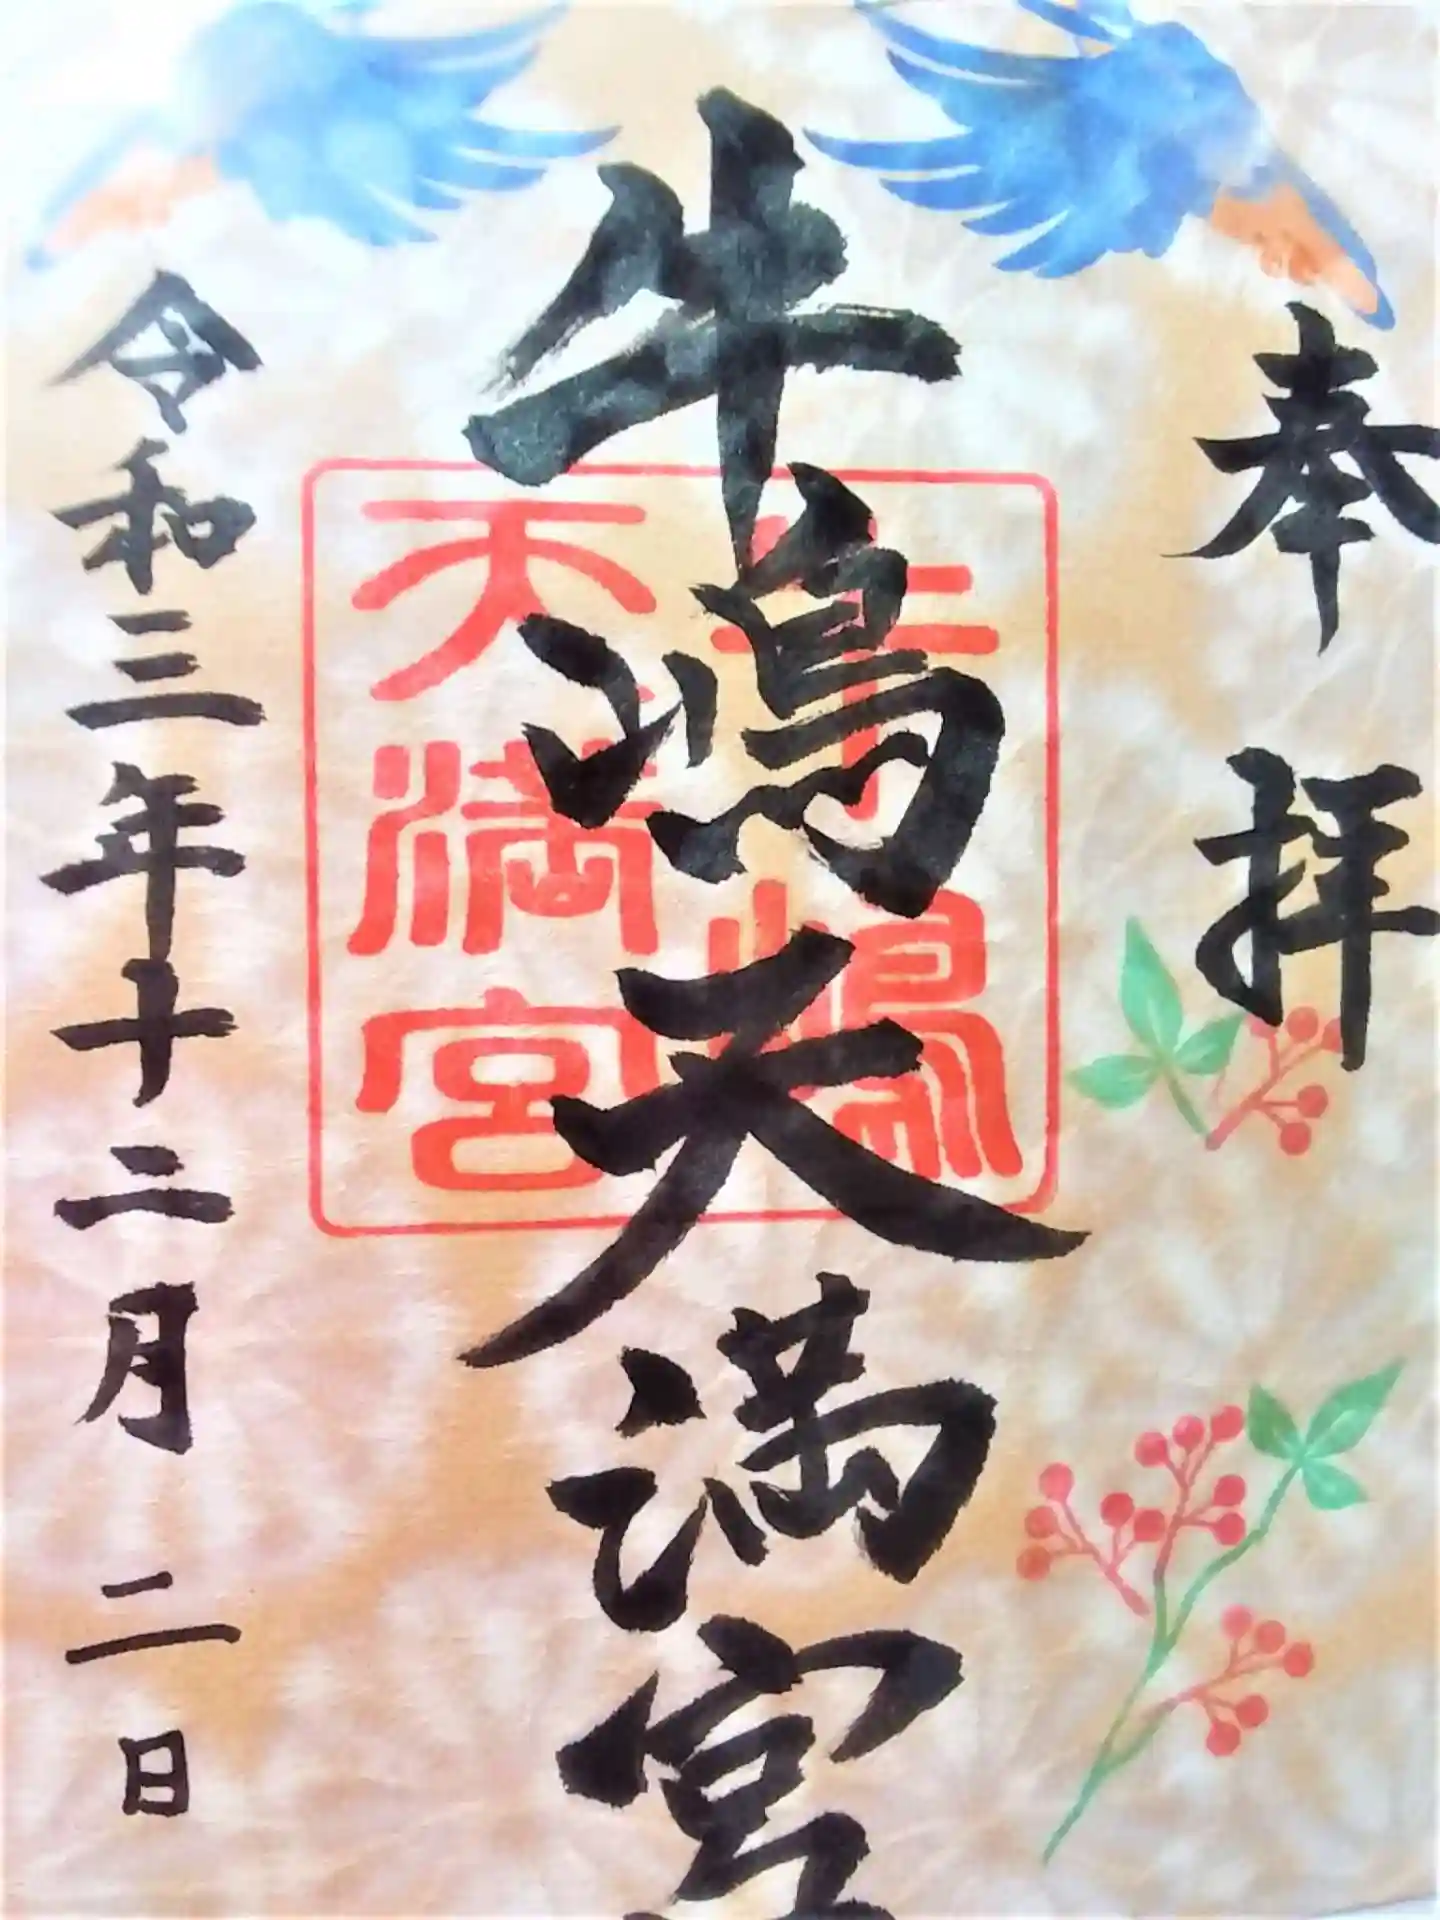 奉拝
牛嶋天満宮
牛嶋
天満宮
令和三年十二月二日